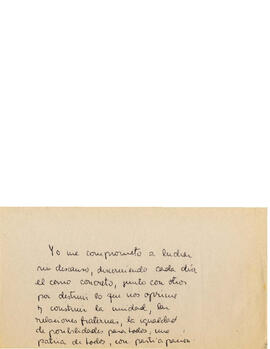 Yo me comprometo a luchar
sin descanso, discerniendo cada día
el como concreto, junto con otros
por destruir lo que nos oprime
y construir la unidad, las
relaciones fraternas, la igualdad
de posibilidades para todos, una
patria de todos, con